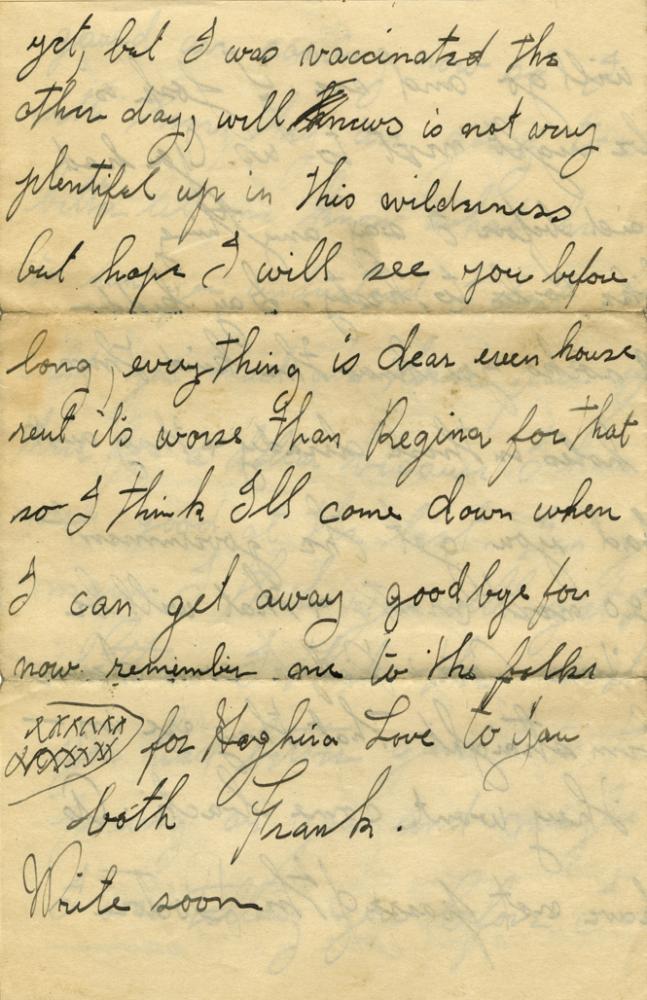 yet, but I was vaccinated the
other day, will knews is not very
plentiful up in this wilderness
but hope I will see you before
long, everything is dear even house
rent it's worse than Regina for that
so I think I'll come down when
I can get away goodbye for
now remember me to the folks
xxxxxx
xxxxxx for Love to you
both Frank.
Write soon